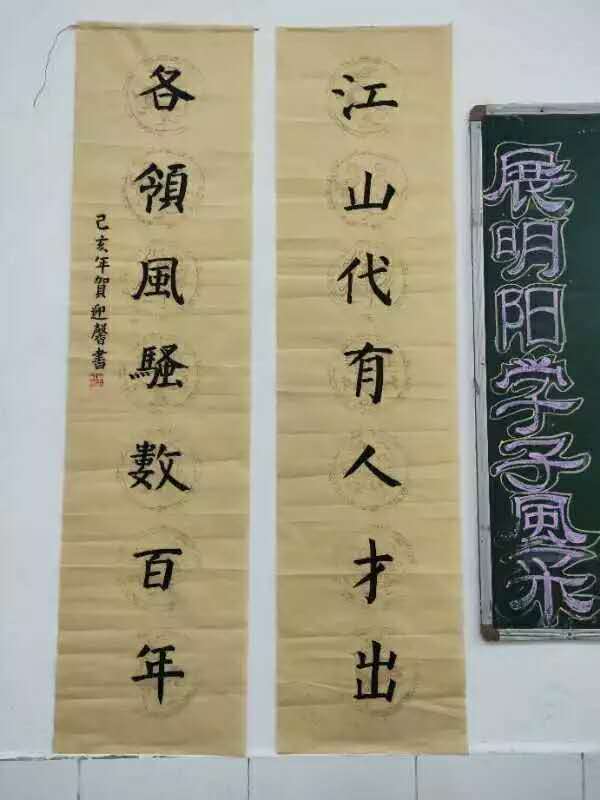 江山代有人才出
各領風騷數百年
己亥年賀迎馨書
展明阳学子风采